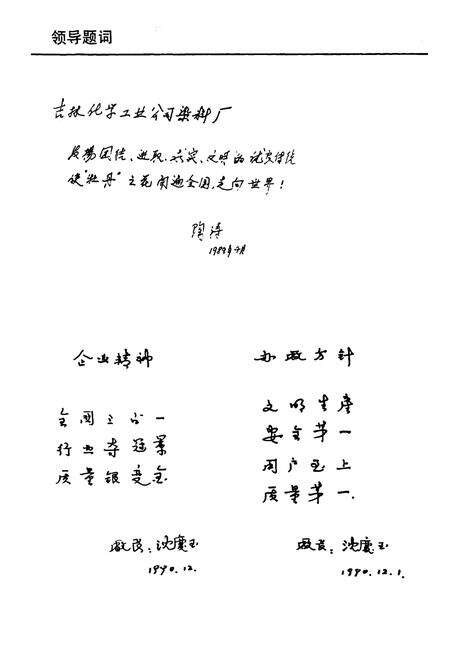 领导题词
吉林化学工业公司染料厂
发扬团结、进取、求实、文明的优良传统
使"牡丹"之花开遍全国,走向世界!
陶涛
1989年
企业精神
全国三占一
行业夺冠景
质量银变金
厂长:沈庆玉
1990.12.
办厂方针
文明生产
安全第一
用户至上
质量第一.
厂长:沈庆玉
1990.12.1.